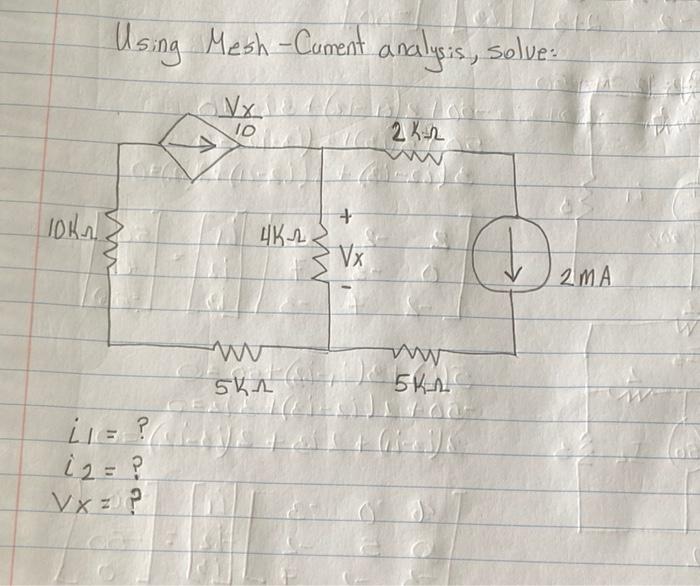 Using Mesh-Current analysis, solve:
Vx
10
2KΩ
10KΩ
4KΩ
+
Vx
-
2mA
5KΩ
5KΩ
i1 = ?
i2 = ?
Vx = ?